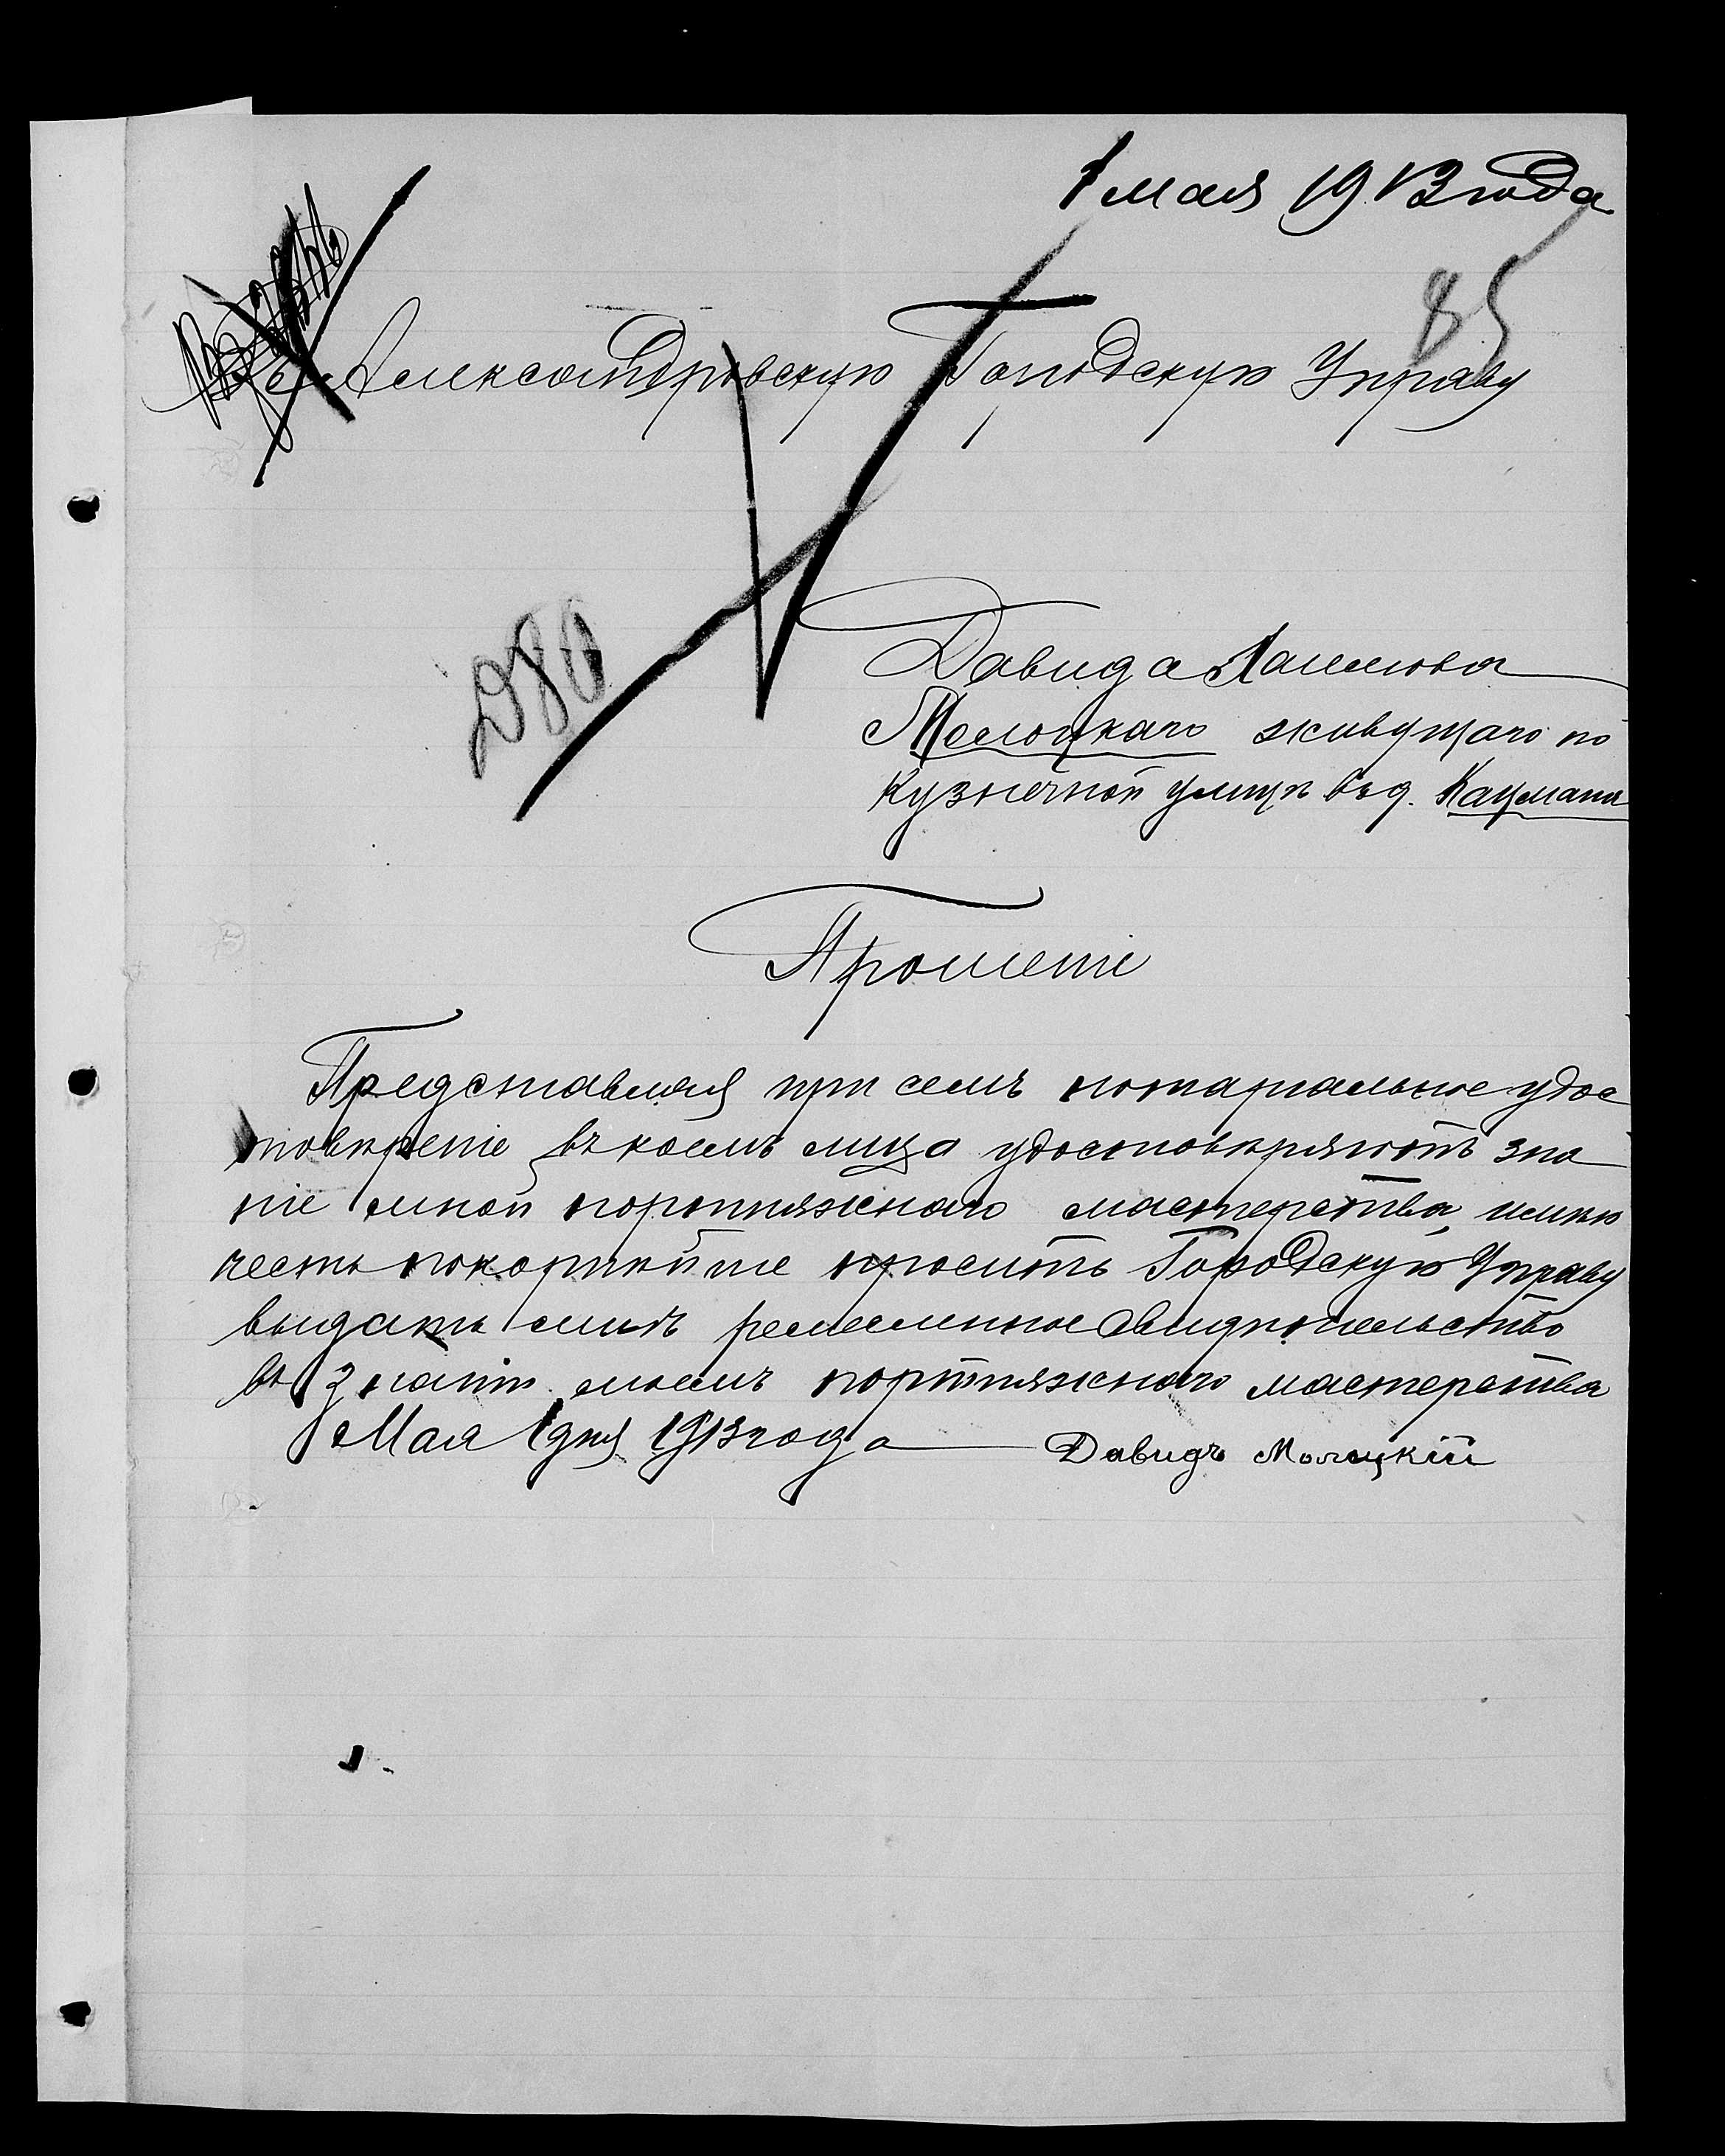 1 мая 1913 года
85
Александровскую Городскую Управу
280
Давида
Молоцкаго живущаго по
Кузнечной улицѣ въ д. Кацмана
Прошеніе
Представляя при семъ нотаріальное удос
товѣреніе въ коемъ лица удостовѣряютъ зна
ніе мной портняжнаго мастерства, имѣю
честь покорнѣйше просить Городскую Управу
выдать мнѣ ремесленное свидѣтельство
въ знаніи моемъ портняжнаго мастерства
Мая 1 дня 1913 года Давидъ Молоцкій